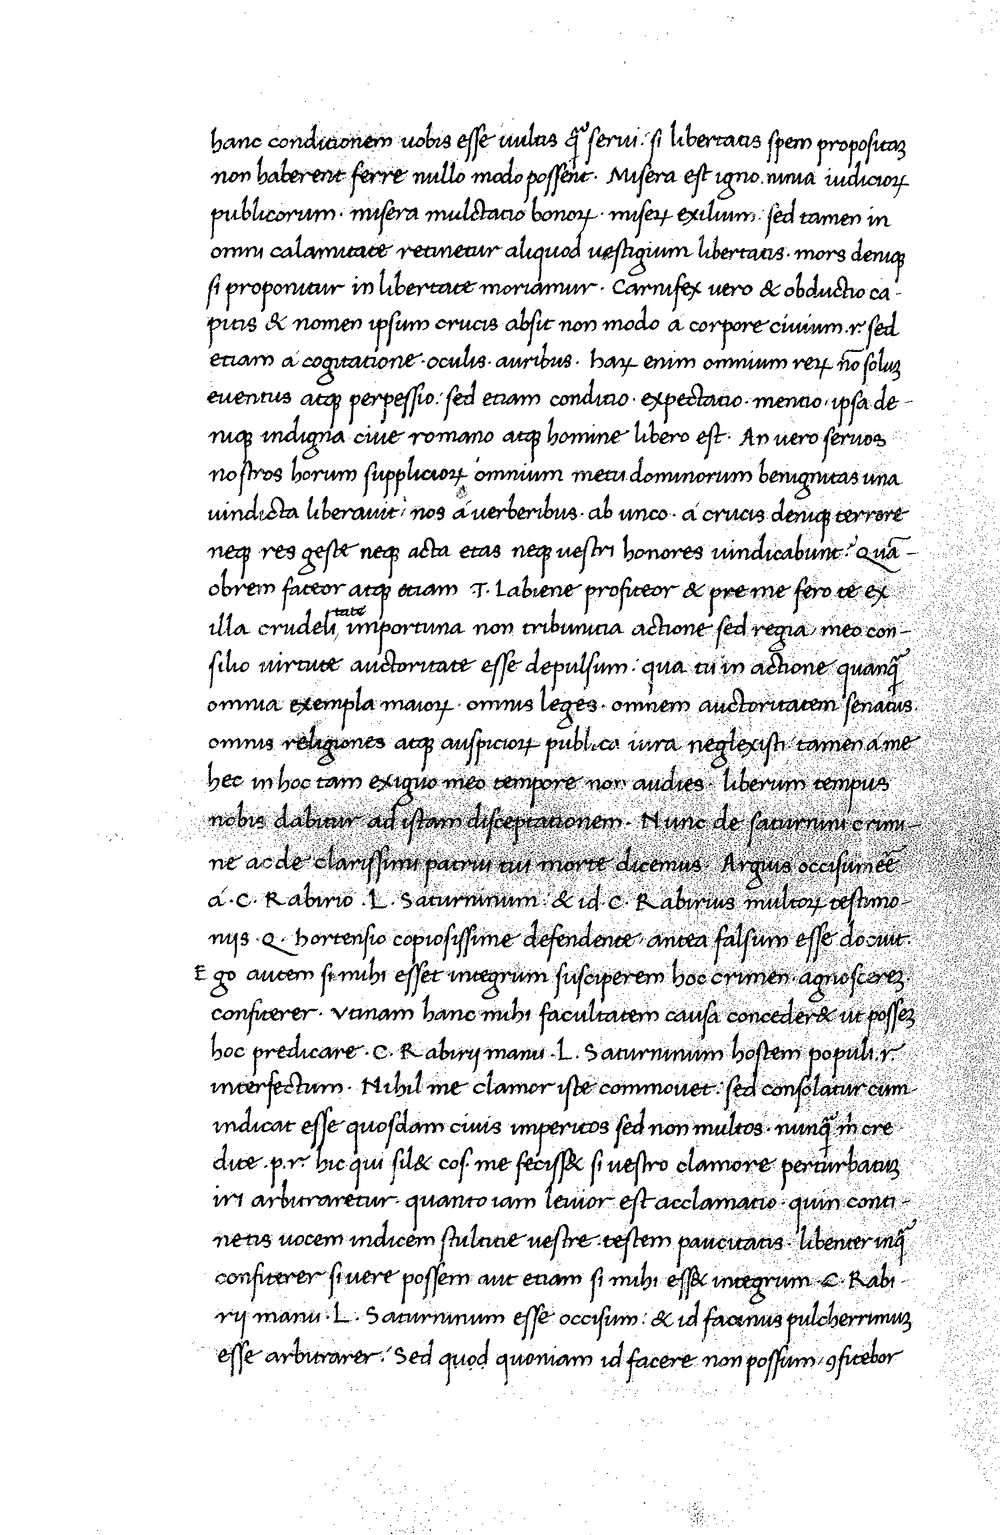 hanc conditionem uobis esse uultis q̃ serui: si libertatis spem propositaꝫ
non haberent ferre nullo modo possent. Misera est igno.minia iudicioꝝ
publicorum. misera mulctatio bonoꝝ. miseꝝ exilium: sed tamen in
omni calamitate retinetur aliquod vestigium libertatis. mors deniqꝫ
si proponitur in libertate moriamur. Carnifex vero & obductio ca-
pitis & nomen ipsum crucis absit non modo a corpore ciuium .r. sed
etiam a cogitatione. oculis. auribus. haꝝ enim omnium reꝝ nō soluꝫ
euentus atqꝫ perpessio: sed etiam conditio. expectatio. mentio. ipsa de-
niqꝫ indigna ciue romano atqꝫ homine libero est. An vero seruos
nostros horum supplicioꝝ omnium metu dominorum benignitas una
uindicta liberauit: nos a uerberibus. ab unco. a crucis deniqꝫ terrore
neqꝫ res gestę neqꝫ acta etas neqꝫ vestri honores uindicabunt? Quā-
obrem fateor atqꝫ etiam .T. Labiene profiteor & pre me fero te ex
illa crudeli\tate/ importuna non tribunitia actione sed regia, meo con-
silio uirtute auctoritate esse depulsum: qua tu in actione quanq̃
omnia exempla maioꝝ. omnis leges. omnem auctoritatem senatus.
omnis religiones atqꝫ auspicioꝝ publica iura neglexisti tamen a me
hec in hoc tam exiguo meo tempore non audies. liberum tempus
nobis dabitur ad istam disceptationem. Nunc de saturnini crimi-
ne ac de clarissimi patrui tui morte dicemus. Arguis occisum eē
a .C. Rabirio .L. Saturninum: & id .C. Rabirius multoꝝ testimo-
niis .Q. hortensio copiosissime defendente, antea falsum esse docuit.
Ego autem si mihi esset integrum susciperem hoc crimen. agnoscereꝫ
confiterer. vtinam hanc mihi facultatem causa conceder& ut posseꝫ
hoc predicare .C. Rabirij manu .L. Saturninum hostem populi .r.
interfectum. Nihil me clamor iste commouet: sed consolatur cum
indicat esse quosdam ciuis imperitos sed non multos. nunq̃ m̄ cre
dite .p.r. hic qui sil& cos. me feciss& si vestro clamore perturbatuꝫ
iri arbitraretur. quanto iam leuior est acclamatio. quin conti-
netis uocem indicem stultitie vestre. testem paucitatis. libenter inq̃
confiterer si vere possem aut etiam si mihi ess& integrum .C. Rabi-
rij manu .L. Saturninum esse occisum: & id facinus pulcherrimuꝫ
esse arbitrarer: Sed quod quoniam id facere non possum, ꝯfitebor